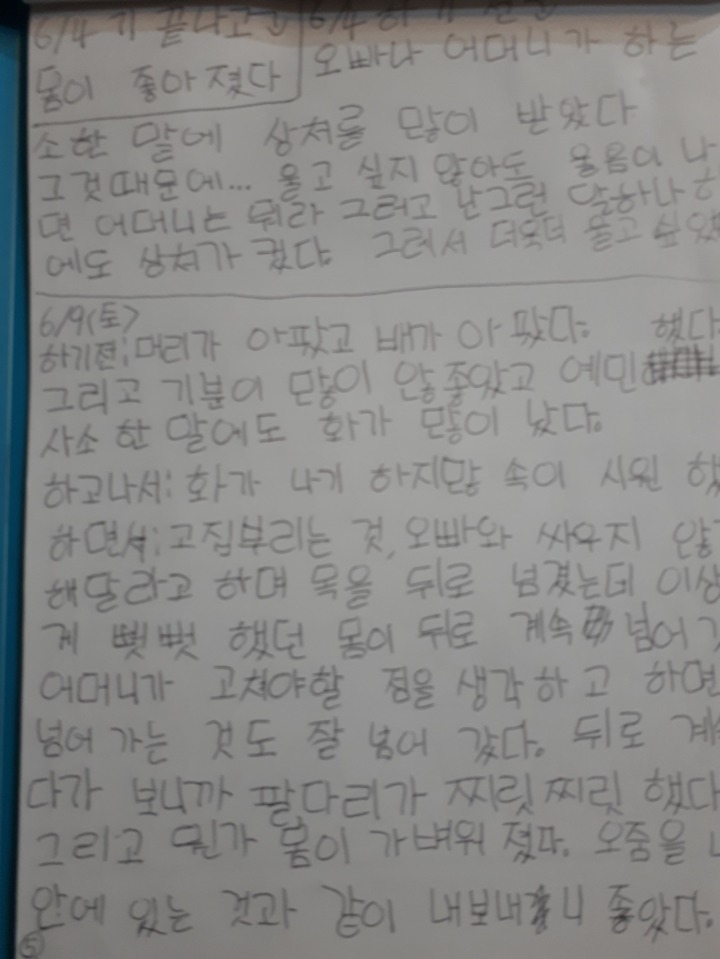 6/4 기 끝나고
몸이 좋아졌다
6/4 하기 전
오빠나 어머니가 하는
소한 말에 상처를 많이 받았다
그것때문에... 울고 싶지 않아도 울음이 나
면 어머니는 뭐라 그러고 난그런 말하나하
에도 상처가 컸다. 그러서 더욱더 울고 싶었
6/9(토)
하기전: 머리가 아팠고 배가 아팠다. 했다
그리고 기분이 많이 않좋았고 예민
사소한 말에도 화가 많이 났다.
하고나서: 화가 나기 하지많 속이 시원 했
하면서: 고집부리는 것, 오빠와 싸우지 않
해달라고 하며 목을 뒤로 넘겼는데 이상
게 뻣뻣 했던 몸이 뒤로 계속 넘어
어머니가 고쳐야할 점을 생각하고 하면
넘어 가는 것도 잘 넘어 갔다. 뒤로 계
다가 보니까 팔다리가 찌릿찌릿 했다
그리고 뭔가 몸이 가벼워 졌다. 오줌을
안에 있는 것과 같이 내보내니 좋았다.
⑤